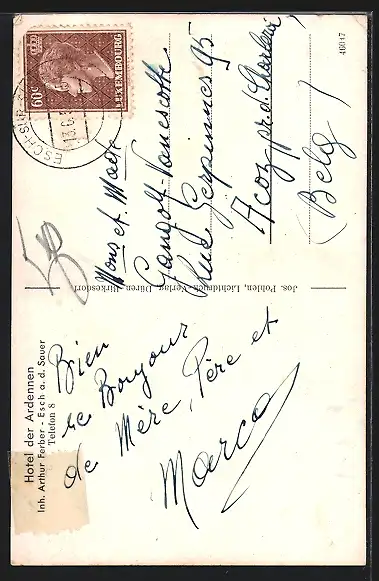 Hotel der Ardennen
Inh. Arthur Ferber - Esch a. d. Sauer
Telefon 8
Bien
le Bonjour
de Mère, Père et
Marco
Jos. Pohlen, Lichtdruck-Verlag, Düren-Birkesdorf
60c
LUXEMBOURG
ESCH-SUR-
13.6.
50
Mons et Made
Gangolf-Vanescotte
Rue Gerpinnes 95
Acoz pr. d. Charleroi
(Belg)
46017